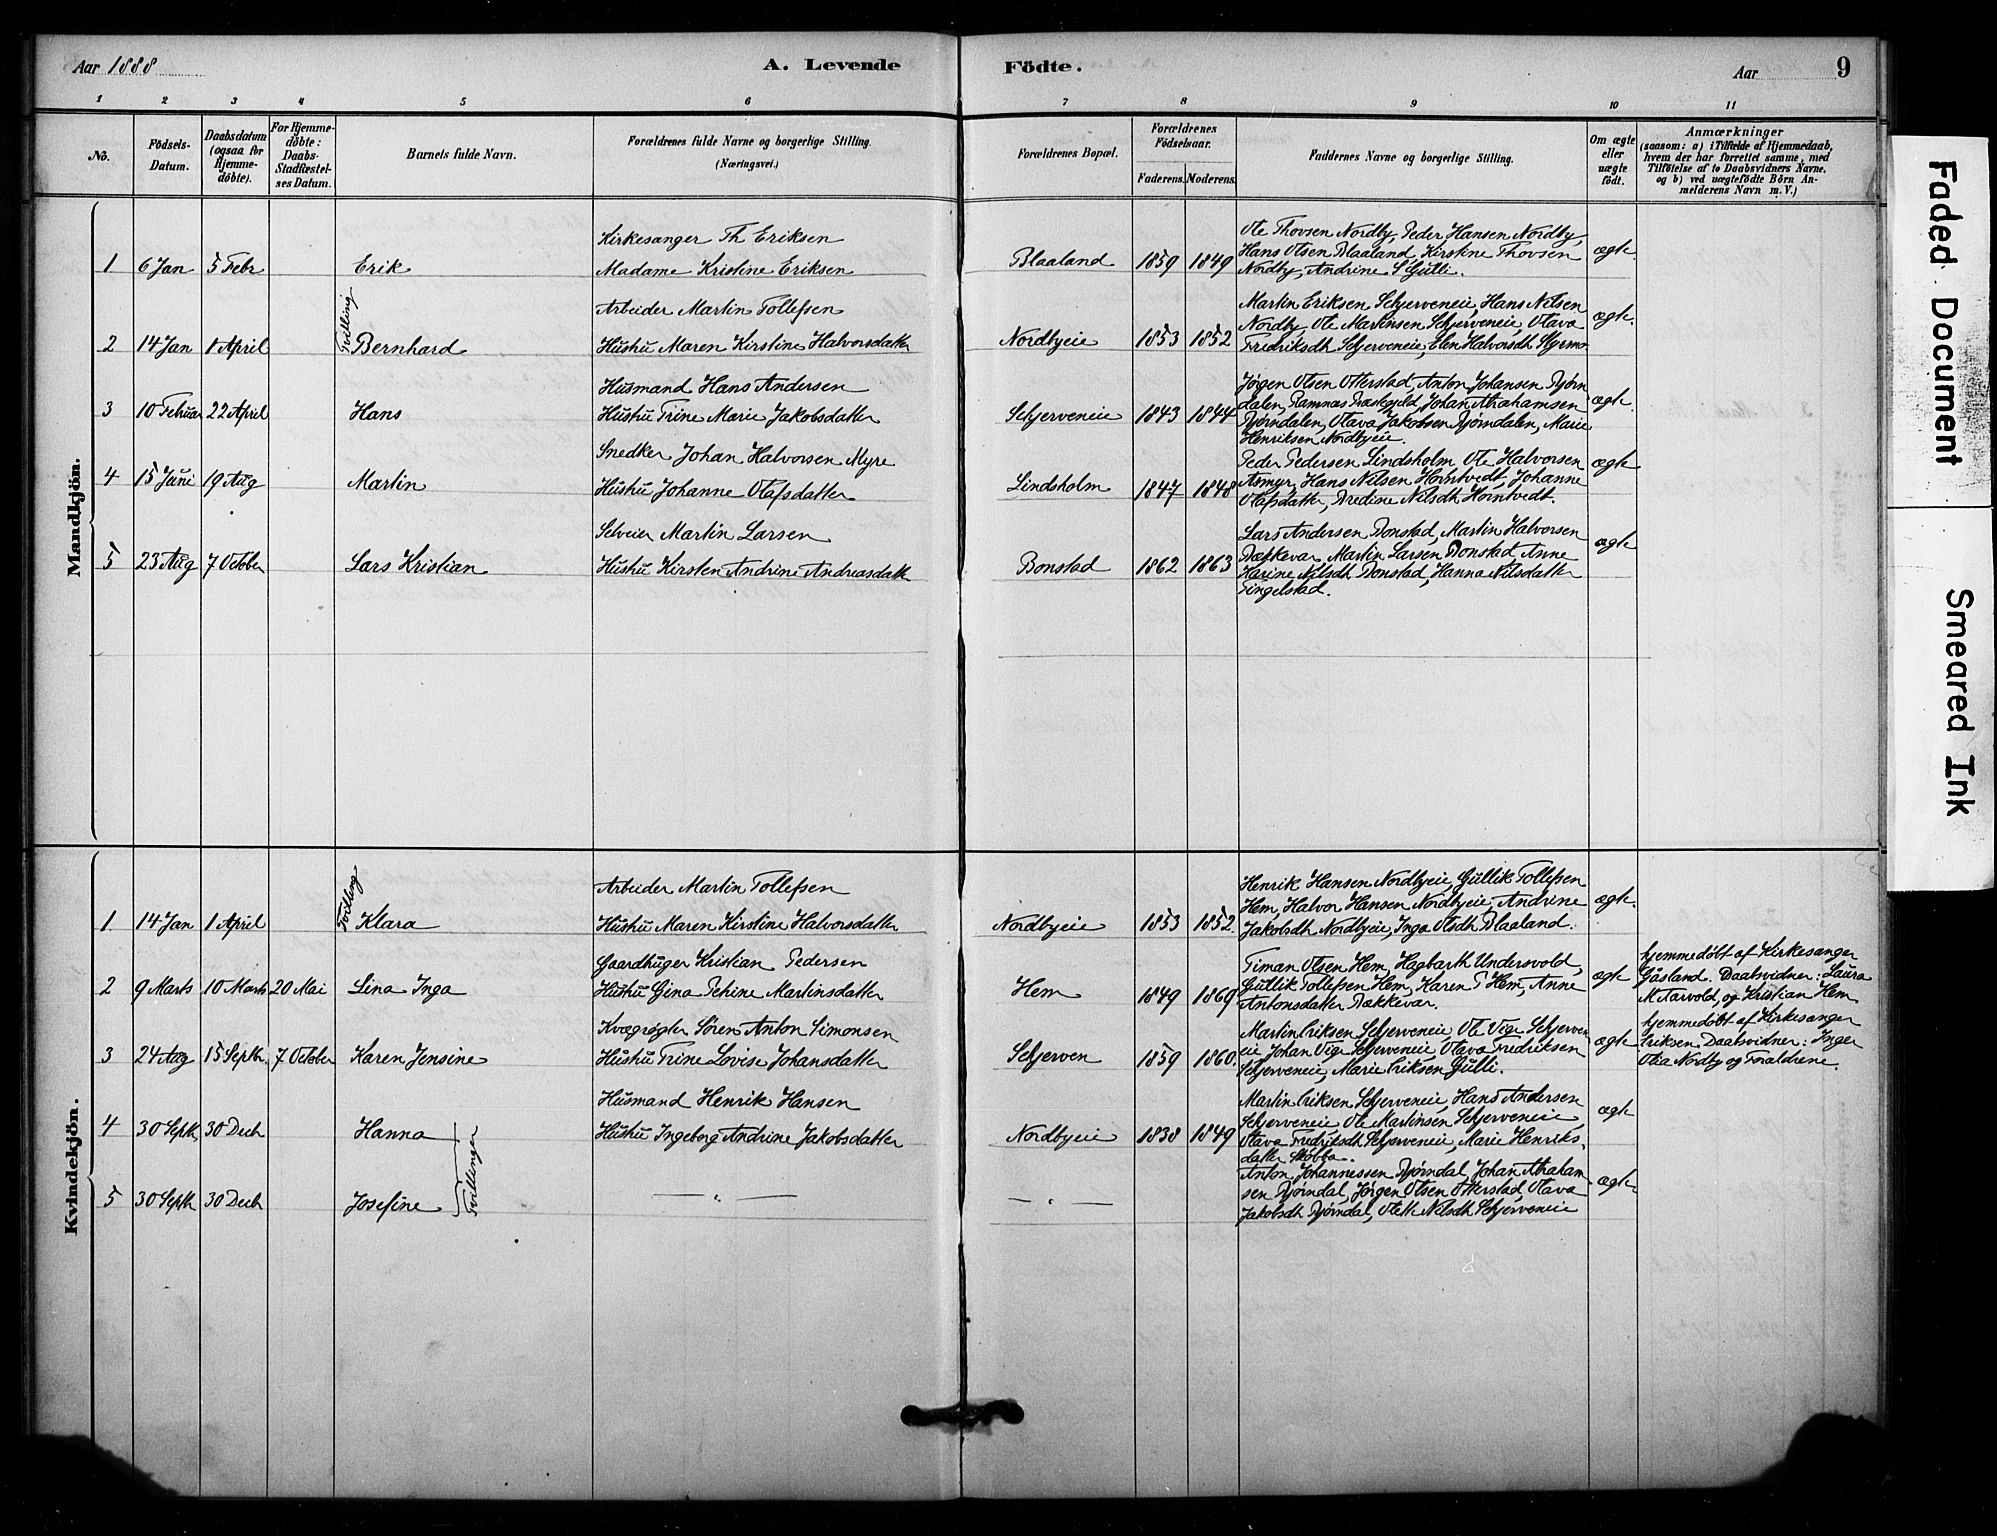 Aar 1888
A. Levende
Födte.
Aar
9
1 2 3 4 5 6 7 8 9 10 11
No.
Födsels-
Datum.
Daabsdatum
(ogsaa for
Hjemme-
döbte).
For Hjemme-
döbte:
Daabs-
Stadfæstel-
ses Datum.
Barnets fulde Navn.
Forældrenes fulde Navne og borgerlige Stilling.
(Næringsvei.)
Forældrenes Bopæl.
Forældrenes
Födselsaar.
Faderens. Moderens.
Faddernes Navne og borgerlige Stilling.
Om ægte
eller
uægte
födt.
Anmærkninger
(saasom: a) i Tilfælde af Hjemmedaab,
hvem der har forrettet samme, med
Tilföielse af to Daabsvidners Navne,
og b) ved uægtefödte Börn An-
melderens Navn m. V.)
Mandkjön.
Kirkesanger Th Eriksen
1 6 Jan 5 Febr Erik Madame Kristine Eriksen Blaaland 1859 1849
Ole Thovsen Nordby, Peder Hansen Nordby,
Hans Olsen Blaaland, Kirstine Thovsen
Nordby, Andrine S Gulli.
ægte
Tvilling
Arbeider Martin Tollefsen
2 14 Jan 1 April Bernhard Hustru Maren Kirstine Halvorsdatter Nordbyeie 1853 1852
Martin Eriksen Schjerveneie, Hans Nilsen
Nordby, Ole Martinsen Schjerveneie, Olava
Fredriksdtr Schjerveneie, Elen Halvorsdtr Styrmo
ægte.
Husmand Hans Andersen
3 10 Februar 22 April Hans Hustru Trine Marie Jakobsdatter Schjerveneie 1843 1844
Jörgen Olsen Otterstad, Anton Johansen Bjørn
dalen, Ramnæs Præstegjeld, Johan Abrahamsen
Bjørndalen, Olava Jakobsen Bjørndalen, Marie
Henriksen Nordbyeie.
ægte.
Snedker Johan Halvorsen Myre
4 15 Juni 19 Aug Martin Hustru Johanne Olafsdatter Lindsholm 1847 1848
Peder Pedersen Lindsholm Ole Halvorsen
Asmyr, Hans Nilsen Horntvedt, Johanne
Olafsdatter, Bredine Nilsdtr Horntvedt.
ægte
Selveier Martin Larsen
5 23 Aug 7 October Lars Kristian Hustru Kirsten Andrine Andreasdatter Bonstad 1862 1863
Lars Andersen Bonstad, Martin Halvorsen
Bækkevar Martin Larsen Bonstad Anne
Karine Nilsdtr Bonstad, Hanna Nilsdatter
Tingelstad.
ægte
Kvindekjön.
Tvilling
Arbeider Martin Tollefsen
1 14 Jan 1 April Klara Hustru Maren Kirstine Halvorsdatter Nordbyeie 1853 1852
Henrik Hansen Nordbyeie, Gullik Tollefsen
Hem, Halvor Hansen Nordbyeie, Andrine
Jakobsdtr Nordbyeie, Inga Olsdtr Blaaland.
ægte.
Gaardbruger Kristian Pedersen
2 9 Marts 10 Marts 20 Mai Lina Inga Hustru Gina Martinsdatter Hem 1849 1869
Timan Olsen Hem, Hagbarth Undersvold,
Gullik Tollefsen Hem, Karen P Hem, Anne
Antonsdatter Bækkevar.
ægte
hjemmedøbt af Kirkesanger
Gåsland. Daabsvidner: Laura
M. Tarvold, og Kristian Hem
Kvægrøgter Sören Anton Simonsen
3 24 Aug 15 Septbr 7 October Karen Jensine Hustru Trine Lovise Johansdatter Schjerven 1859 1860.
Martin Eriksen Schjerveneie Ole Vige Schjerven
eie Johan Vige Schjerveneie, Olava Fredriksen
Schjerveneie, Marie Eriksen Gulli.
ægte
hjemmedöbt af Kirkesanger
Eriksen Daabsvidner: Inger
Olea Nordby og Forældrene.
Husmand Henrik Hansen
4 30 Septbr 30 Decb Hanna Hustru Ingeborg Andrine Jakobsdatter Nordbyeie 1838 1849
Martin Eriksen Schjerveneie, Hans Andersen
Schjerveneie Ole Martinsen Schjerveneie
Olava Fredriksdtr Schjerveneie, Marie Henriks.
datter Støbbo.
ægte
Tvillinger
5 30 Septbr 30 Decb Josefine — " — — " —
Anton Johannessen Bjørndal, Johan Abraham
sen Bjørndal, Jørgen Olsen Otterstad, Olava
Jakobsdtr Bjørndal, Olette Nilsdtr Schjerveneie
ægte
Faded Document
Smeared Ink